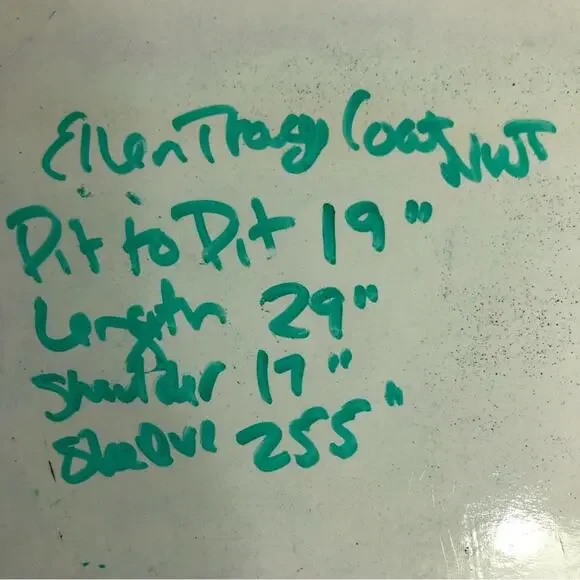 Ellen Tracy Coat NWT
Pit to Pit 19"
Length 29"
Shoulder 17"
Sleeve 255"